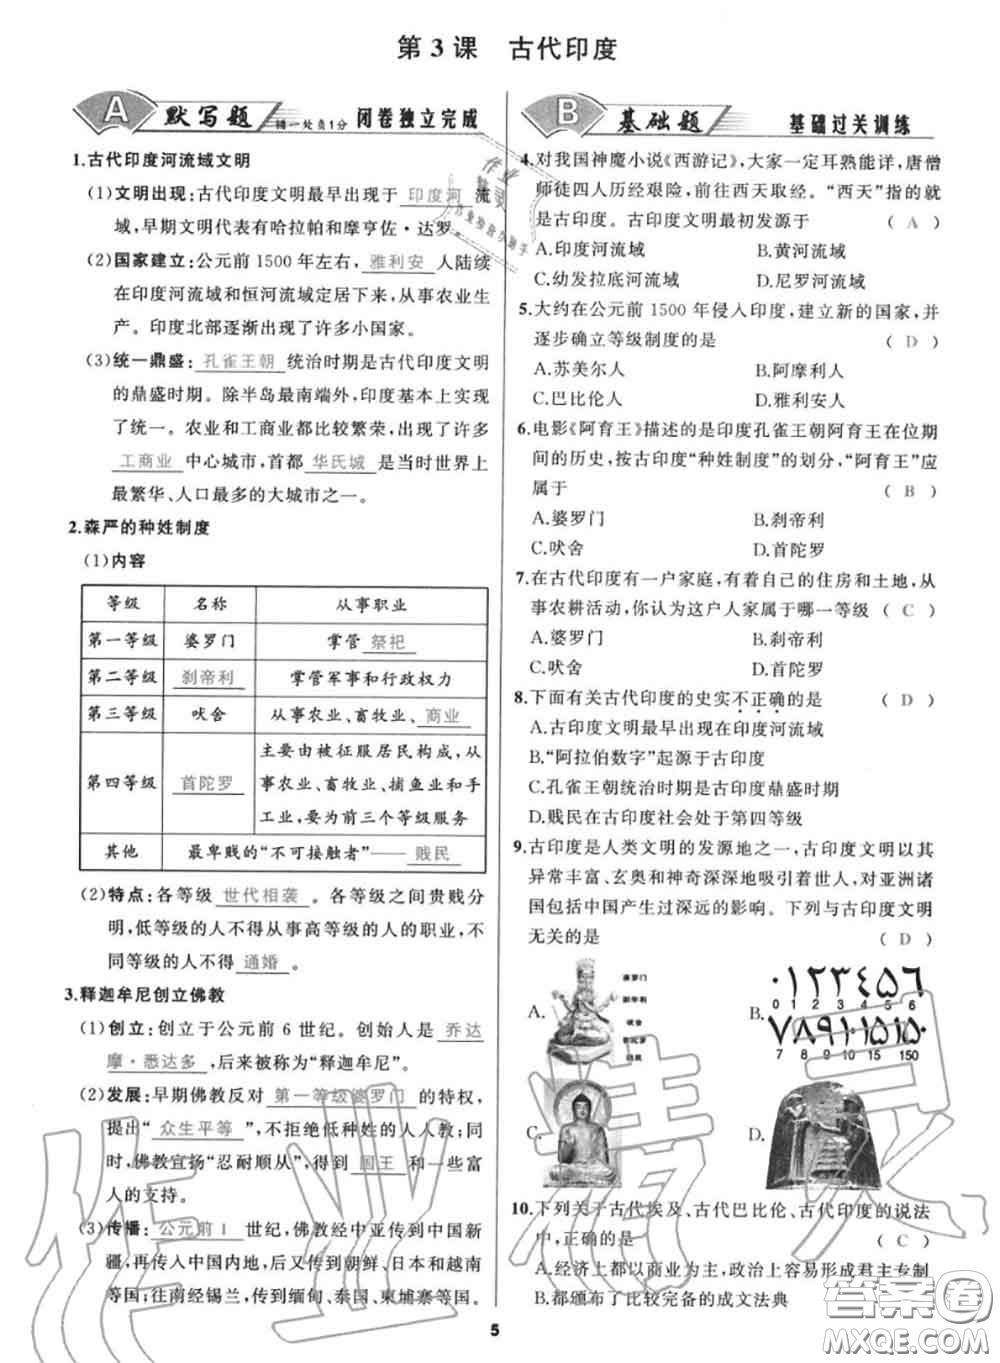 第3课 古代印度
A 默写题 错一处负1分 闭卷独立完成
1.古代印度河流域文明
(1)文明出现:古代印度文明最早出现于 印度河 流
域,早期文明代表有哈拉帕和摩亨佐·达罗。
(2)国家建立:公元前1500年左右, 雅利安 人陆续
在印度河流域和恒河流域定居下来,从事农业生
产。印度北部逐渐出现了许多小国家。
(3)统一鼎盛: 孔雀王朝 统治时期是古代印度文明
的鼎盛时期。除半岛最南端外,印度基本上实现
了统一。农业和工商业都比较繁荣,出现了许多
工商业 中心城市,首都 华氏城 是当时世界上
最繁华、人口最多的大城市之一。
2.森严的种姓制度
(1)内容
等级 名称 从事职业
第一等级 婆罗门 掌管 祭祀
第二等级 刹帝利 掌管军事和行政权力
第三等级 吠舍 从事农业、畜牧业、 商业
第四等级 首陀罗 主要由被征服居民构成,从
事农业、畜牧业、捕鱼业和手
工业,要为前三个等级服务
其他 最卑贱的“不可接触者”—— 贱民
(2)特点:各等级 世代相袭 。各等级之间贵贱分
明,低等级的人不得从事高等级的人的职业,不
同等级的人不得 通婚 。
3.释迦牟尼创立佛教
(1)创立:创立于公元前6世纪。创始人是 乔达
摩·悉达多 ,后来被称为“释迦牟尼”。
(2)发展:早期佛教反对 第一等级婆罗门 的特权,
提出“ 众生平等 ”,不拒绝低种姓的人入教;同
时,佛教宣扬“忍耐顺从”,得到 国王 和一些富
人的支持。
(3)传播: 公元前1 世纪,佛教经中亚传到中国新
疆,再传入中国内地,后又传到朝鲜、日本和越南
等国;往南经锡兰,传到缅甸、泰国、柬埔寨等国。
B 基础题 基础过关训练
4.对我国神魔小说《西游记》,大家一定耳熟能详,唐僧
师徒四人历经艰险,前往西天取经。“西天”指的就
是古印度。古印度文明最初发源于 ( A )
A.印度河流域 B.黄河流域
C.幼发拉底河流域 D.尼罗河流域
5.大约在公元前1500年侵入印度,建立新的国家,并
逐步确立等级制度的是 ( D )
A.苏美尔人 B.阿摩利人
C.巴比伦人 D.雅利安人
6.电影《阿育王》描述的是印度孔雀王朝阿育王在位期
间的历史,按古印度“种姓制度”的划分,“阿育王”应
属于 ( B )
A.婆罗门 B.刹帝利
C.吠舍 D.首陀罗
7.在古代印度有一户家庭,有着自己的住房和土地,从
事农耕活动,你认为这户人家属于哪一等级 ( C )
A.婆罗门 B.刹帝利
C.吠舍 D.首陀罗
8.下面有关古代印度的史实不正确的是 ( D )
A.古印度文明最早出现在印度河流域
B.“阿拉伯数字”起源于古印度
C.孔雀王朝统治时期是古印度鼎盛时期
D.贱民在古印度社会处于第四等级
9.古印度是人类文明的发源地之一,古印度文明以其
异常丰富、玄奥和神奇深深地吸引着世人,对亚洲诸
国包括中国产生过深远的影响。下列与古印度文明
无关的是 ( D )
A. 婆罗门
刹帝利
吠舍
首陀罗
贱民
B. ٠١٢٣٤٥٦
0 1 2 3 4 5 6
7 8 9 10 15 150
C.
D.
10.下列关于古代埃及、古代巴比伦、古代印度的说法
中,正确的是 ( C )
A.经济上都以商业为主,政治上容易形成君主专制
B.都颁布了比较完备的成文法典
5
作业精灵
答案圈
MXQE.COM